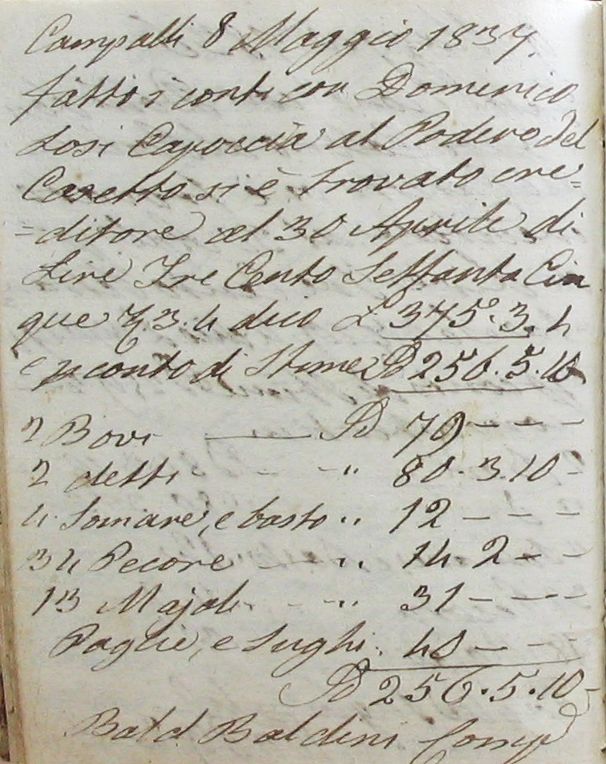 Campalli 8 Maggio 1837.
fatto i conti con Domenico
Losi Capoccia al Podere del
Casetto si è trovato cre=
=ditore al 30 Aprile di
Lire Tre Cento Settanta Cin
que 3. 4 dico L 375. 3. 4
conto di Stime 256. 5. 10
2 Bovi 70 - - -
2 detti - - " 80. 3. 10 -
4 Somare, e basto " 12 - - -
34 Pecore " 14 2 - -
13 Majali - - " 31 - - -
Paglie, e Sughi " 40 - -
256. 5. 10 -
Bald Baldini